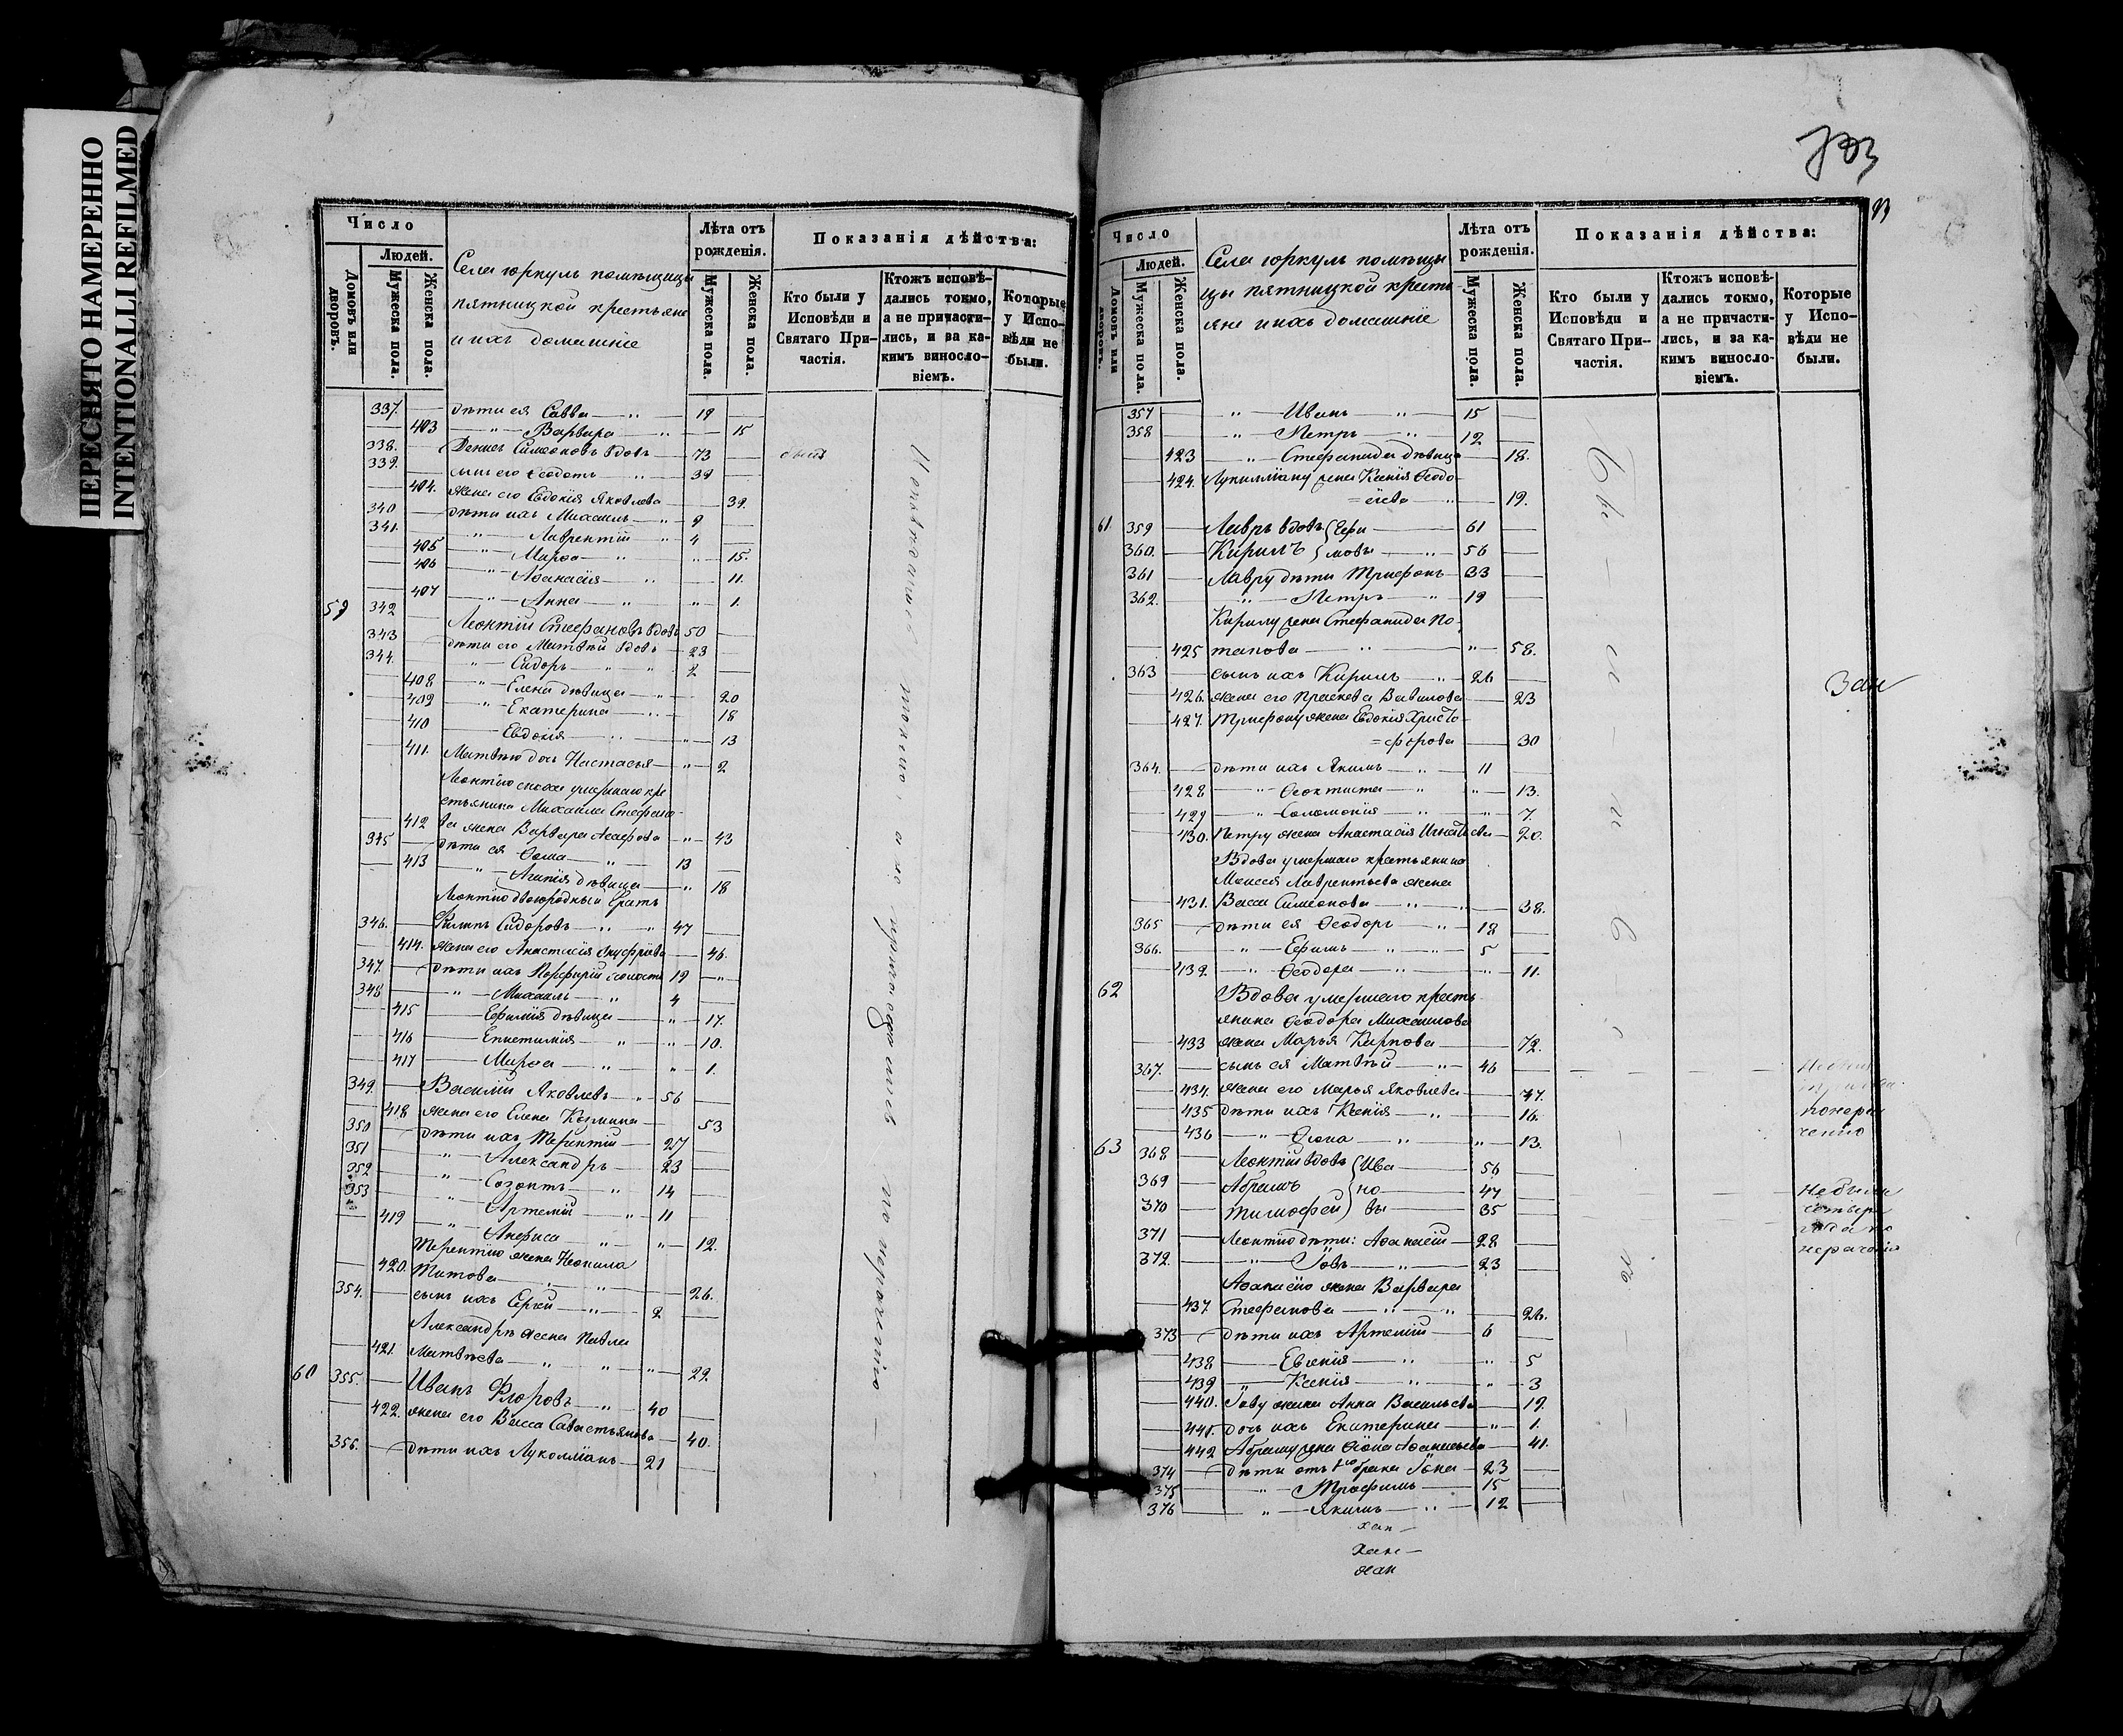 ПЕРЕСНЯТО НАМЕРЕННО
INTENTIONALLI REFILMED
Число
Людей.
Домовъ или дворовъ.
Мужеска пола.
Женска пола.
Села Юркуль помѣщицы
пятницкой крестьяне
и ихъ домашніе
Лѣта отъ рожденія.
Мужеска пола.
Женска пола.
Показанія дѣйства:
Кто были у Исповѣди и Святаго При-частія.
Ктожъ исповѣ-дались токмо, а не причасти-лись, и за ка-кимъ виносло-віемъ.
Которые у Испо-вѣди не были.
337. дѣти ея Савва 19
403 Варвара 15
338. Денисъ Симеоновъ вдовъ 73
339. сынъ его Ѳеодотъ 39
404. жена его Евдокія Яковлева 39.
340 дѣти ихъ Михаилъ 9
341. Лаврентій 4
405 Марѳа 15.
406 Аѳанасія 11.
407 Анна 1.
59 342 Леонтій Стефановъ вдовъ 50
343 дѣти его Матвѣй вдовъ 23
344. Сидоръ 2
408 Елена дѣвица 20
409 Екатерина 18
410 Евдокія 13
411. Матвѣю дочь Настасья 2
Леонтію сноха умершаго кре
стьянина Михаила Стефано-
412 ва жена Варвара 43
345 дѣти ея Ѳома 13
413 Агапія дѣвица 18
Леонтію двоюродный братъ
346. Филипъ Сидоровъ 47
414. жена его Анастасія 46.
347. дѣти ихъ Порфирій холостъ 19
348 Михаилъ 4
415 Ефимія дѣвица 17.
416 Епистимія 10.
417 Марѳа 1.
349. Василій Яковлевъ 56
418 жена его Елена Козмина 53
350 дѣти ихъ Терентій 27
351 Александръ 23
352 Созонтъ 14
353 Артемій 11
419 Анфиса 12.
Терентію жена Неонила
420. Титова 26.
354. сынъ ихъ Сергій 2
Александръ жена Павла
421. Матвѣева 22.
60 355. Иванъ Флоровъ 40
422. жена его Васса Савастьянова 40.
356. дѣти ихъ Лукилліанъ 21
Исповѣдались токмо а не причащались по нераченію
Число
Людей.
Домовъ или дворовъ.
Мужеска пола.
Женска пола.
Села Юркуль помѣщи
цы пятницкой кресть
яне и ихъ домашніе
Лѣта отъ рожденія.
Мужеска пола.
Женска пола.
Показанія дѣйства:
Кто были у Исповѣди и Святаго При-частія.
Ктожъ исповѣ-дались токмо, а не причасти-лись, и за ка-кимъ виносло-віемъ.
Которые у Испо-вѣди не были.
357 Иванъ 15
358 Петръ 12
423 Стефанида дѣвица 18.
424. Лукилліану жена Ксенія Ѳеодо-
=сіева 19.
61. 359 Лавръ вдовъ Ефи 61
360. Кирилъ мовы 56
361 Лавру дѣти Трифонъ 33
362. Петръ 19
Кирилу жена Стефанида По-
425 тапова 58.
363 сынъ ихъ Кирилъ 26
426. жена его Праскева Вавилова 23
427. Трифону жена Евдокія Христо-
=форова 30
364. дѣти ихъ Якимъ 11
428 Ѳеоктиста 13.
429 Соломонія 7.
430. Петру жена Анастасія Игнатьева 20.
Вдова умершаго крестьянина
Моисея Лаврентьева жена
431. Васса Симеонова 38.
365 дѣти ея Ѳеодоръ 18
366. Ефимъ 5
439. Ѳеодора 11.
62 Вдова умершаго кресть
янина Ѳеодора Михаилова
433 жена Марья Карпова 72.
367. сынъ ея Матвѣй 46
434. жена его Марья Яковлева 47.
435 дѣти ихъ Ксенія 16.
436 Ѳекла 13.
63 368 Леонтій вдовъ Ива 56
369 Абрамъ но 47
370 Тимоѳей вы 35
371 Леонтію дѣти: Аѳанасій 28
372. Іовъ 23
Аѳанасію жена Варвара
437. Стефанова 26.
373 дѣти ихъ Артемій 6
438 Евгенія 5
439 Ксенія 3
440. Іову жена Анна Васильева 19.
441. дочь ихъ Екатерина 1.
442 Абраму жена Аѳанасьева 41.
374 дѣти отъ 1го брака Іона 23
375 Трофимъ 15
376 Якимъ 12
понера
ченію
небыли
четыре
года по
нераченію